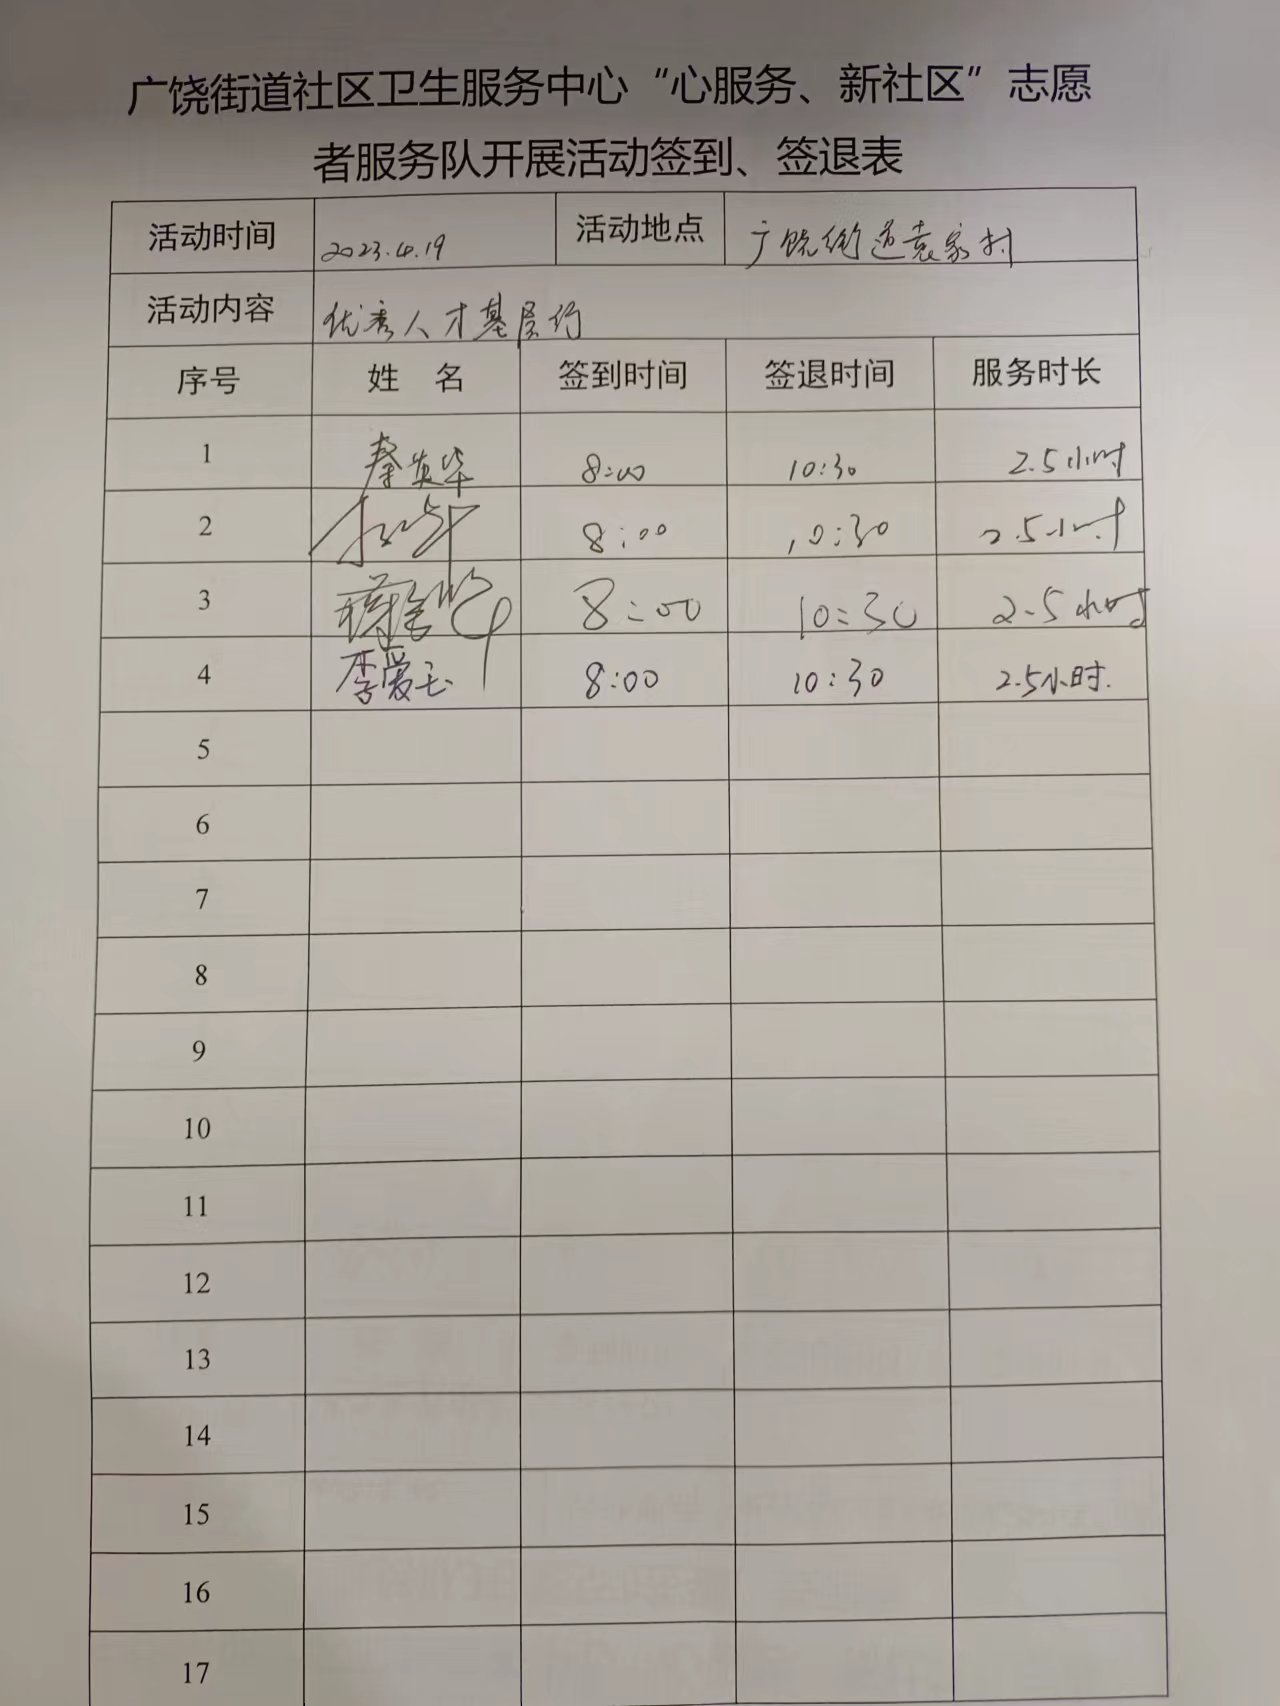 广饶街道社区卫生服务中心“心服务、新社区”志愿
者服务队开展活动签到、签退表
活动时间 2023.4.19 活动地点 广饶街道袁家村
活动内容 优秀人才基层行
序号 姓 名 签到时间 签退时间 服务时长
1 8:00 10:30 2.5小时
2 8:00 10:30 2.5小时
3 8:00 10:30 2.5小时
4 李爱玉 8:00 10:30 2.5小时.
5
6
7
8
9
10
11
12
13
14
15
16
17